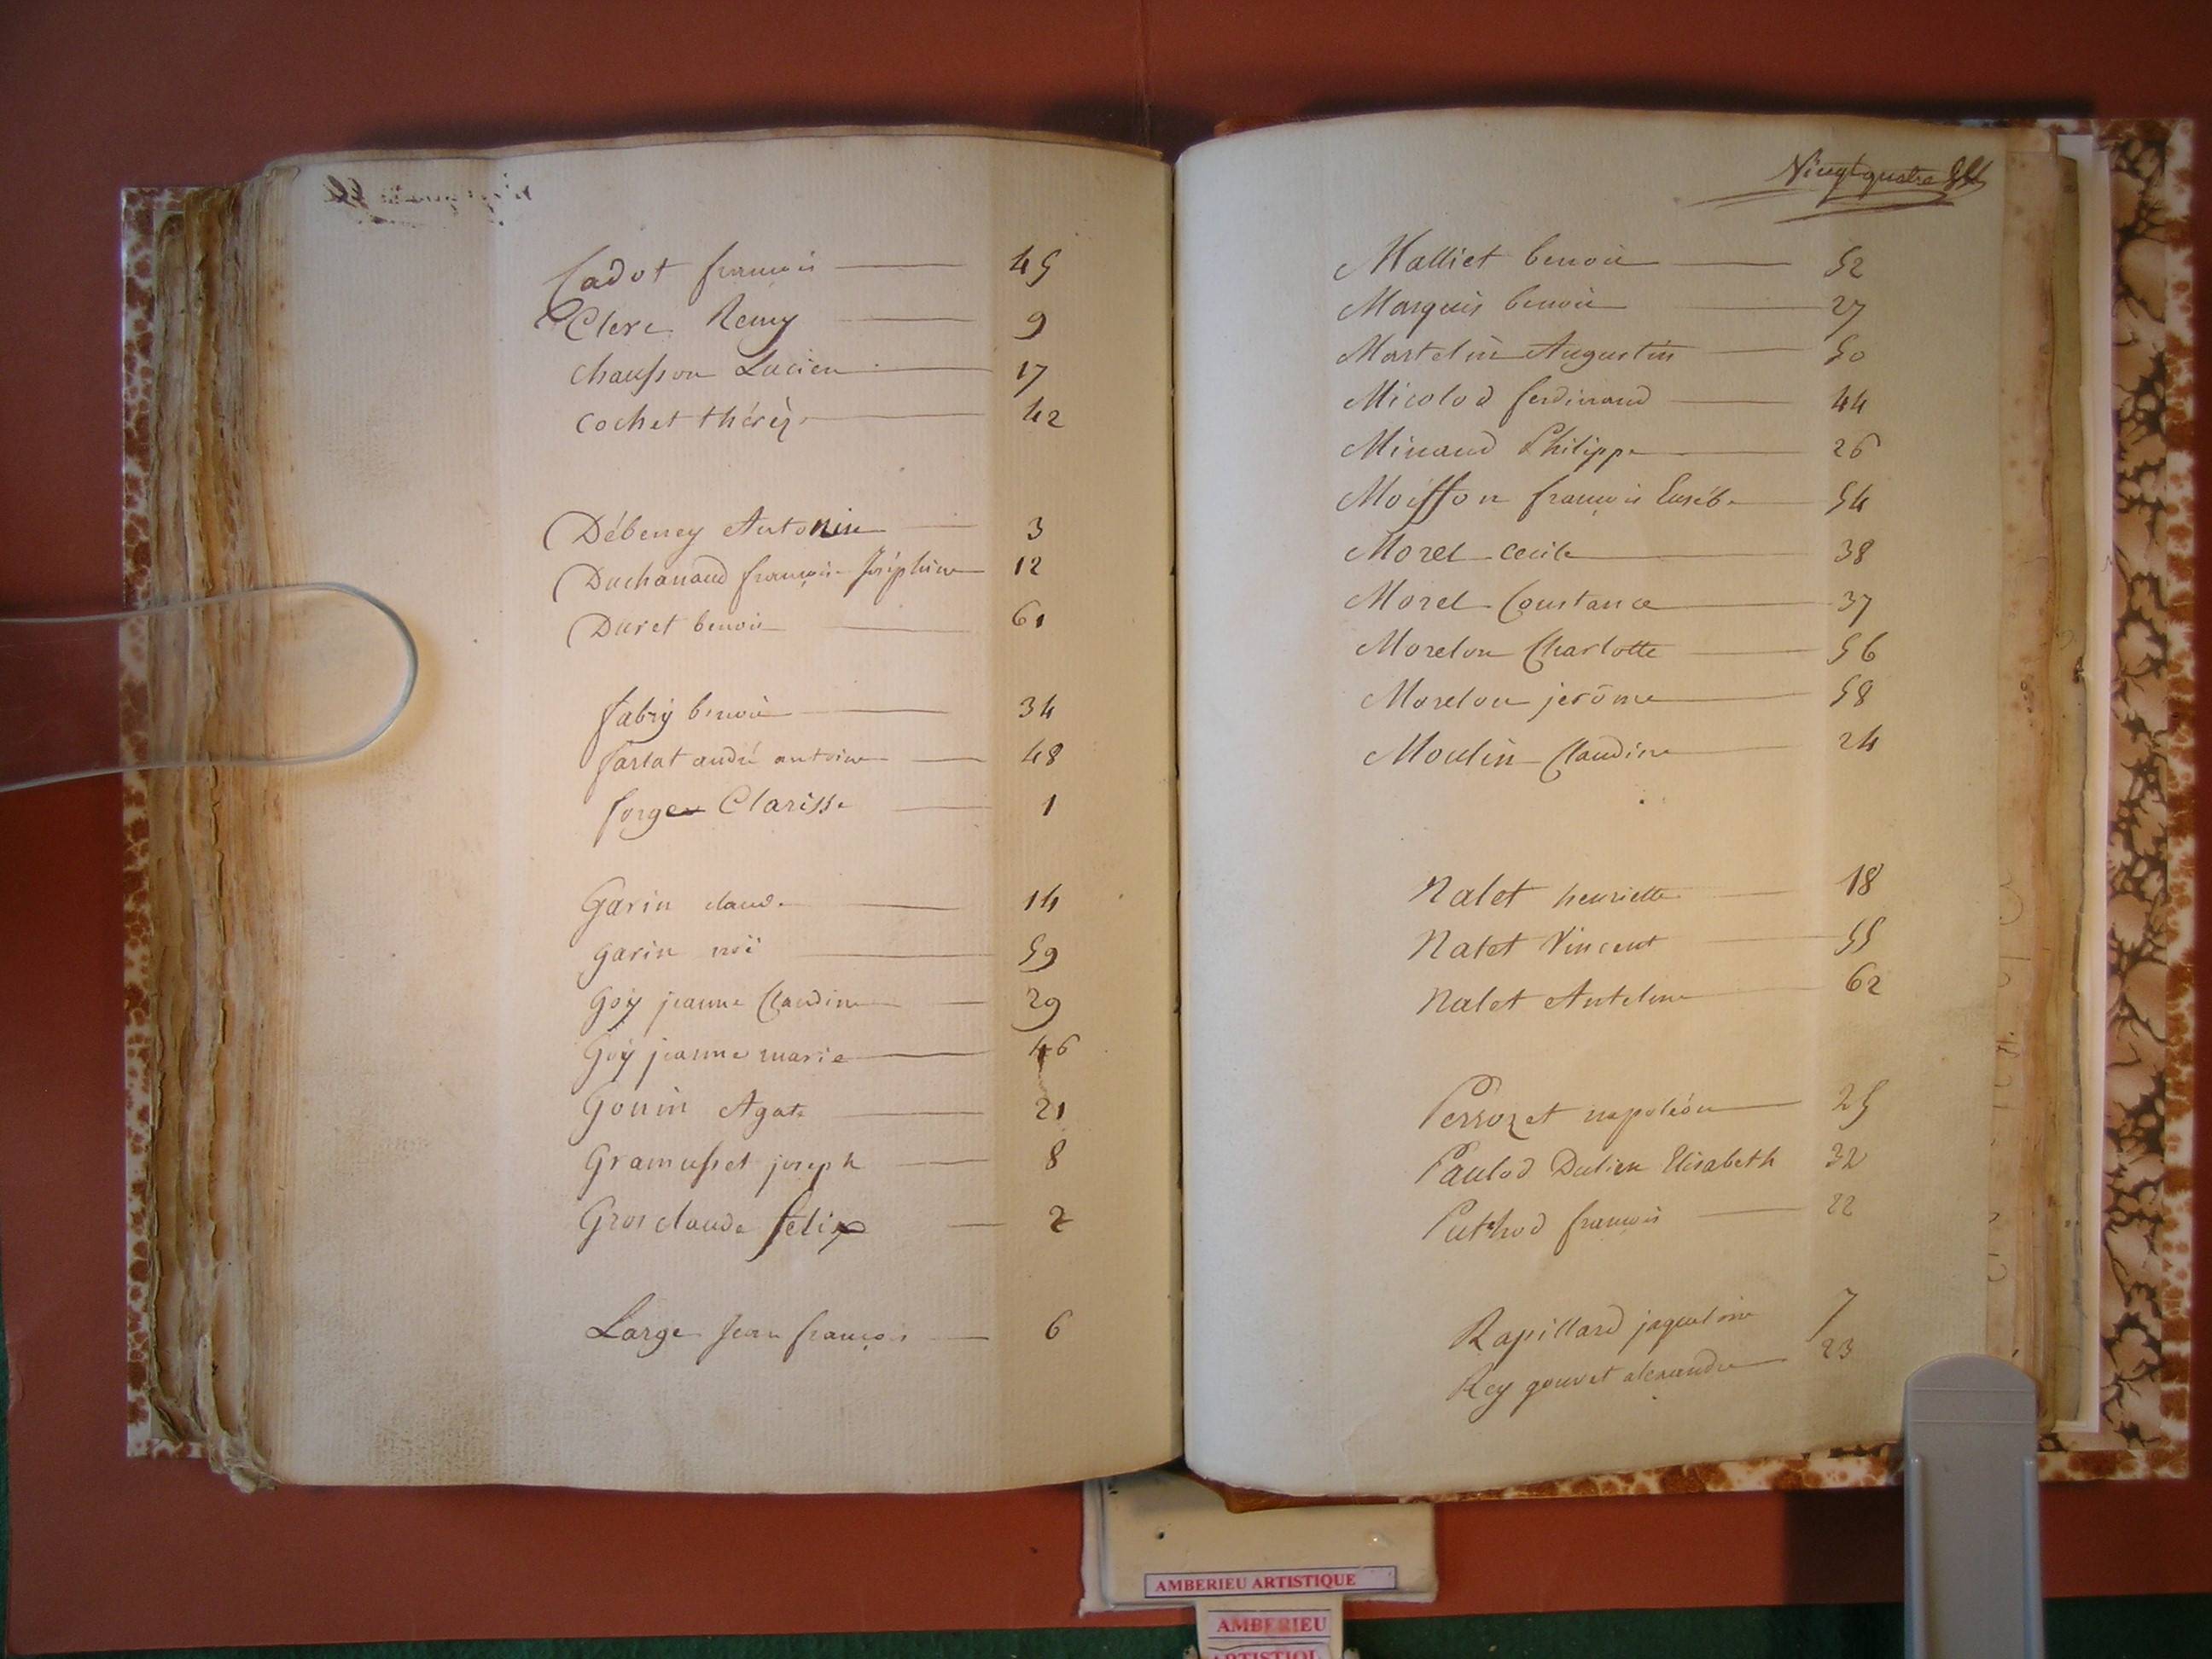 Cadot françois 45
Clerc Remy 9
Chausson Lucien 17
Cochet thérèz 42
Débeney Antonin 3
Duchanaud françoise Joséphine 12
Duret benoit 61
fabry benoit 34
farlat andré antoine 48
forger Clarisse 1
Garin claude 14
garin noë 59
Goÿ jeanne Claudine 29
Goÿ jeanne marie 46
Gonin Agate 21
Gramusset joseph 8
Grosclaude felix 2
Large Jean françois 6
Vingt quatre
Malliet benoit 52
Marquis benoit 27
Martelin Augustin 50
Micolod ferdinand 44
Minaud Philippe 26
Moisson françois Eusèbe 54
Morel cecile 38
Morel Constance 37
Morelon Charlotte 56
Morelon jerôme 58
Moulin Claudine 24
Nalet henriette 18
Nalet Vincent 55
Nalet Antelme 62
Perrozet napoléon 25
Paulod Dulien Elisabeth 32
Puthod françois 22
Rapillard jaqueline 7
Rey gouvet alexandre 23
AMBERIEU ARTISTIQUE
AMBERIEU
ARTISTIQU